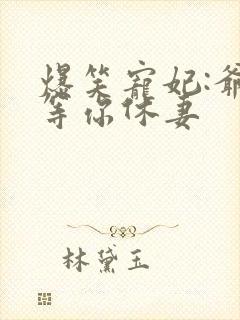 爆笑寵妃:爺
等你休妻
林黛玉